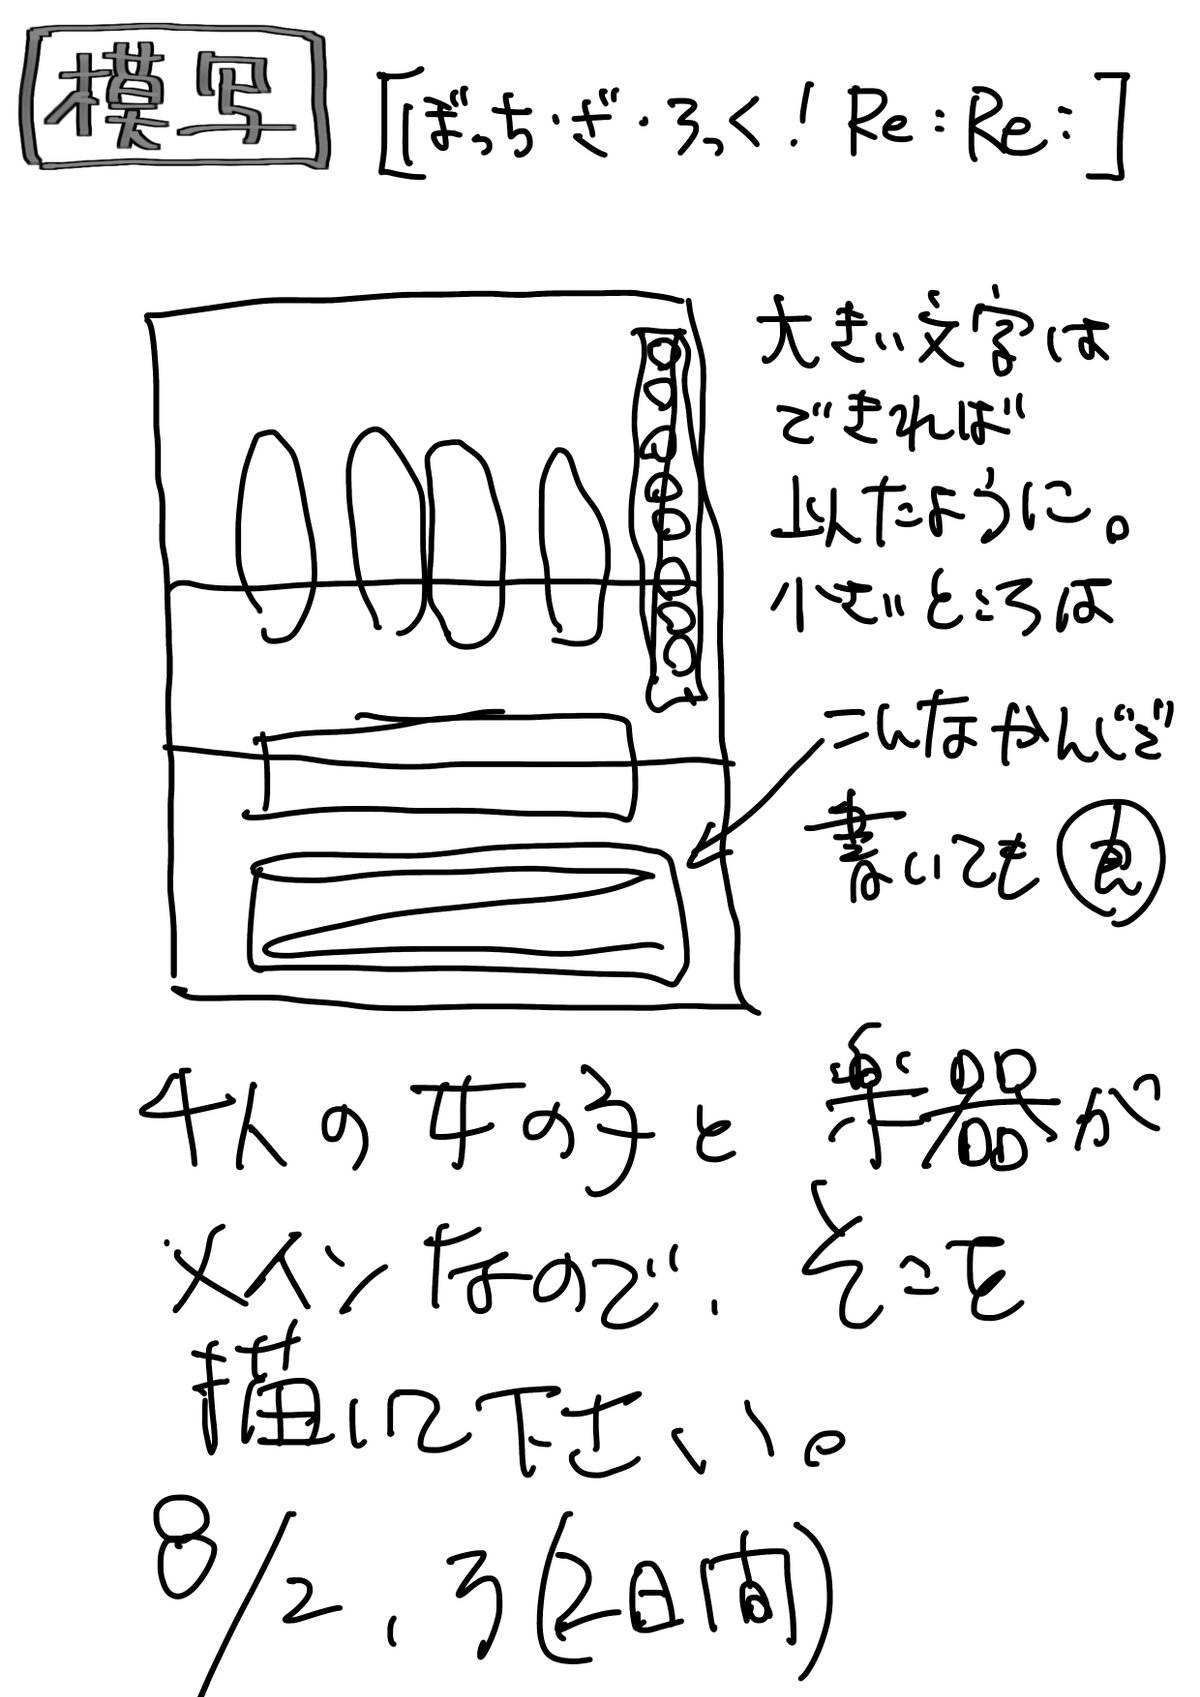 模写
[ぼっち・ざ・ろっく! Re:Re:]
大きい文字は
できれば
似たように。
小さいところは
こんなかんじで
書いても良
4人の女の子と楽器が
メインなので、そこを
描いて下さい。
8/2、3(2日間)